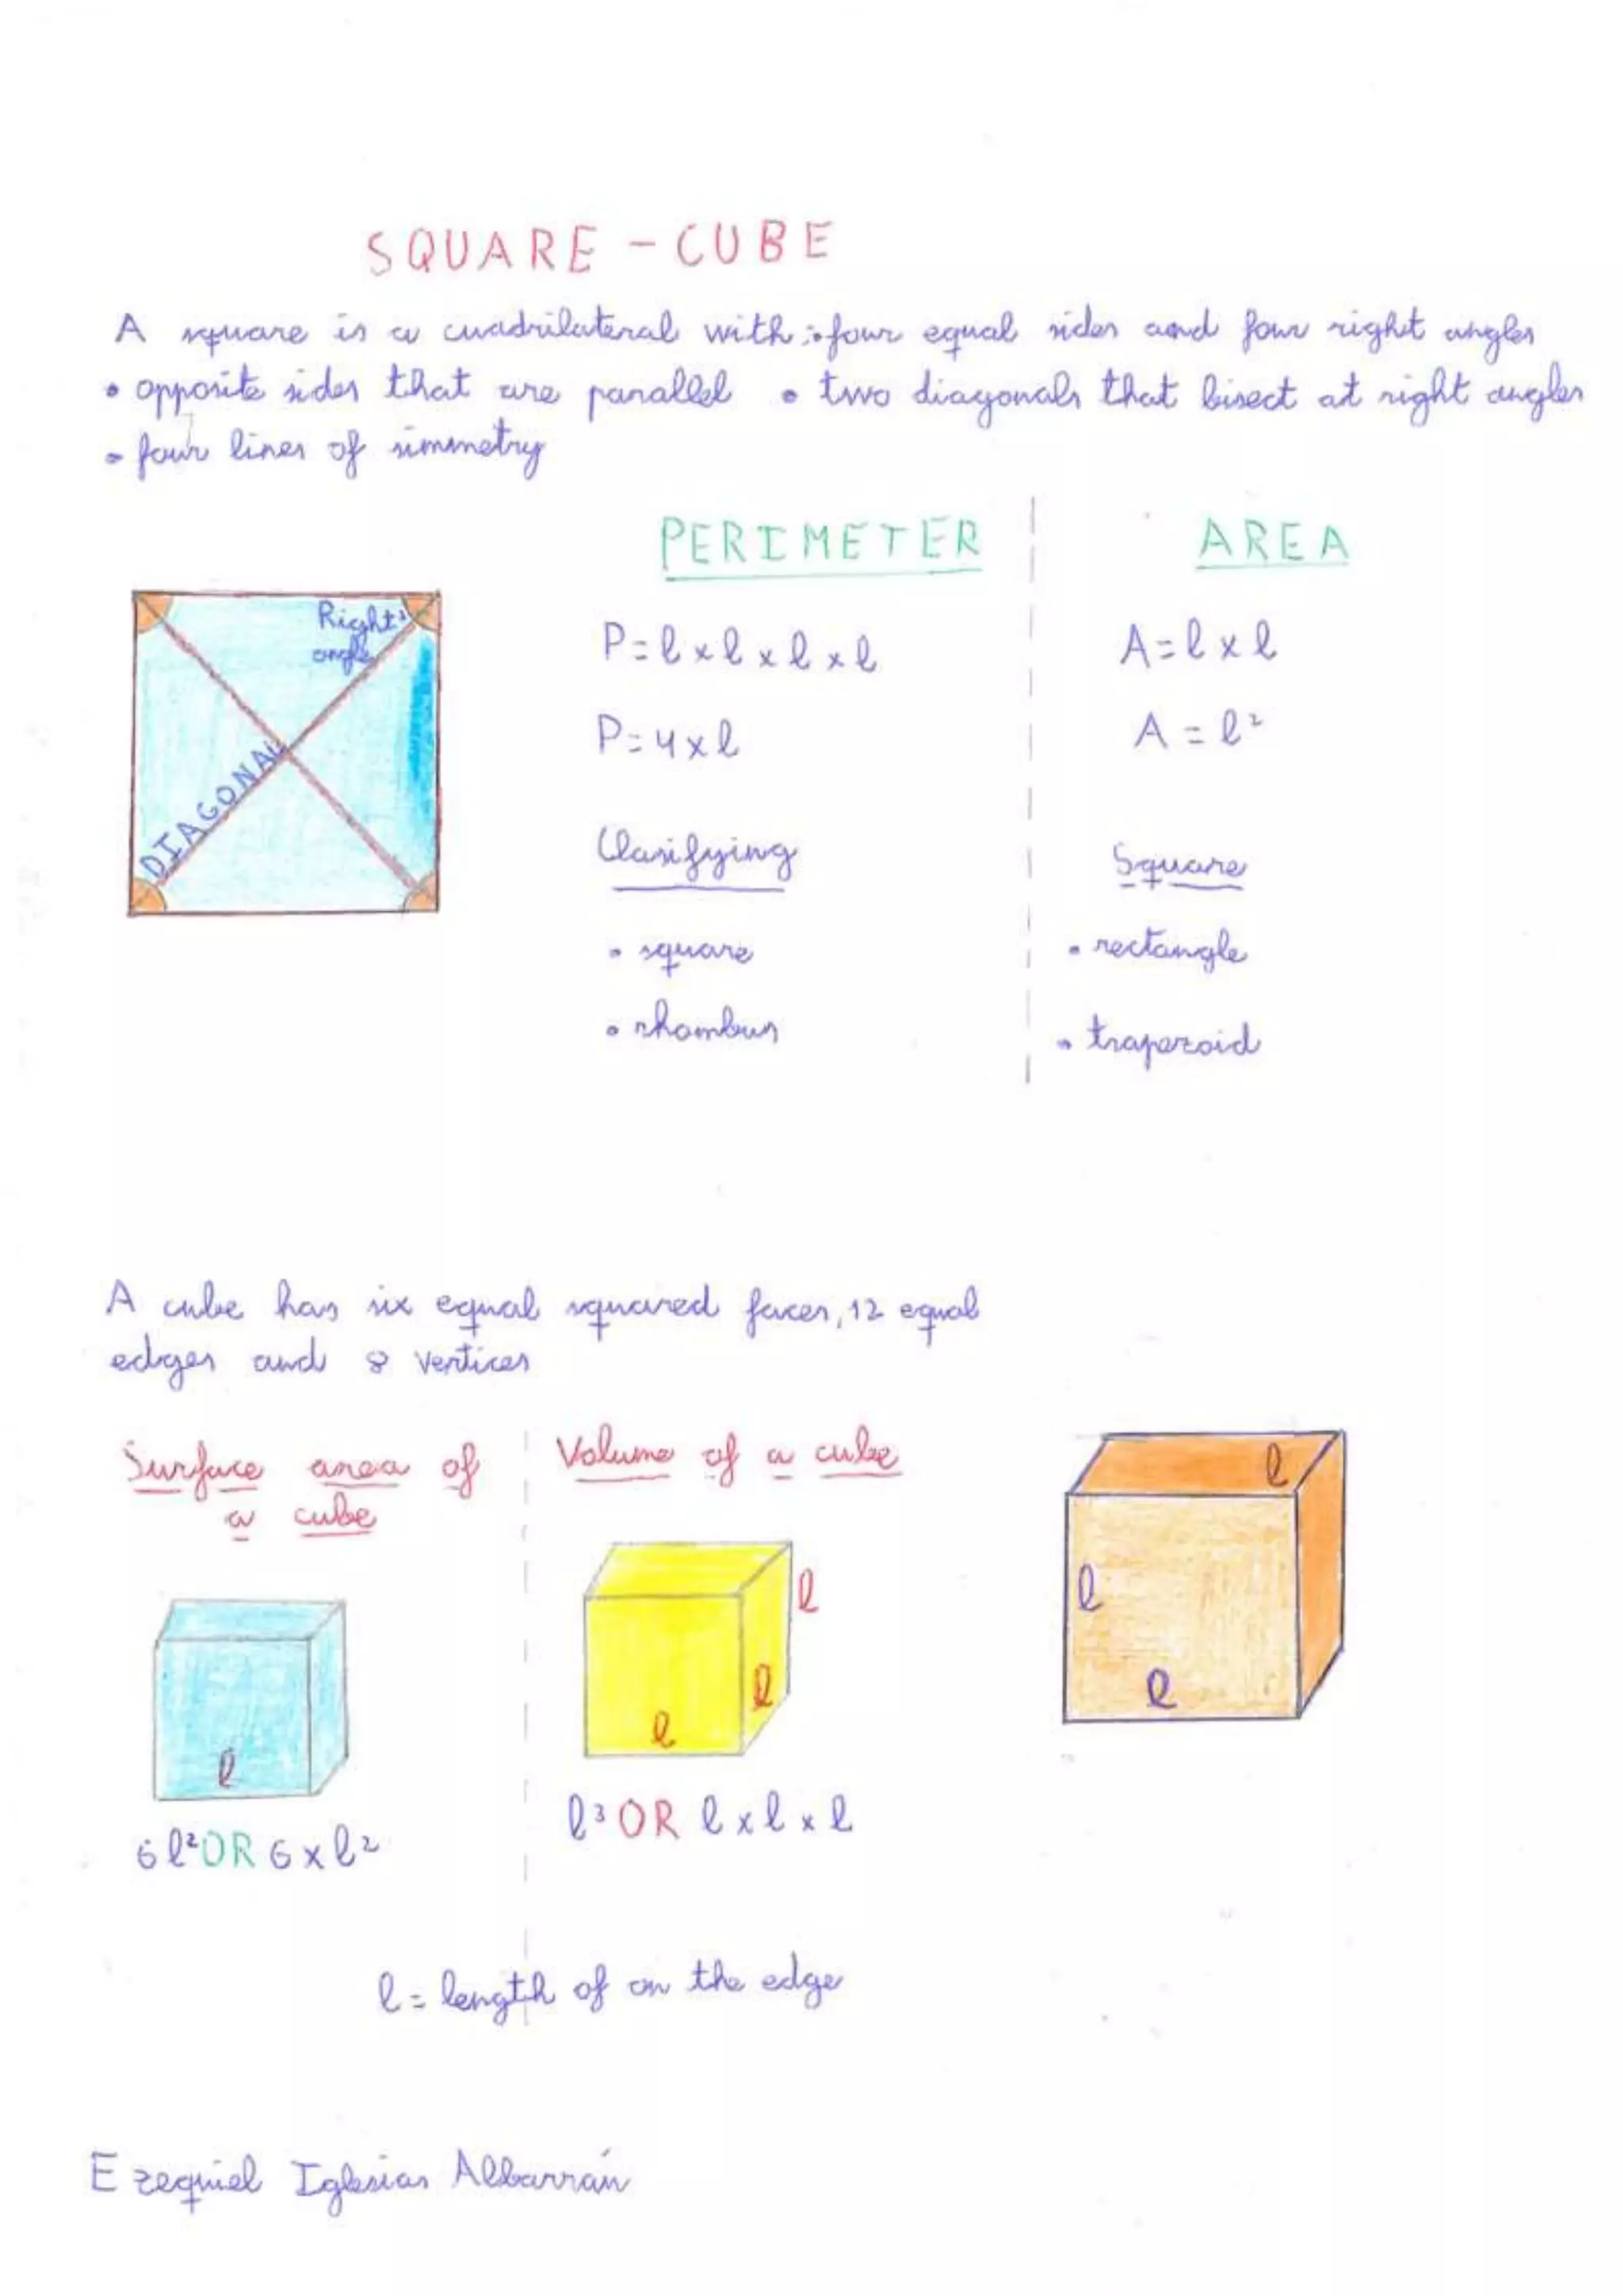 SQUARE - CUBE
A square is a cuadrilateral with: • four equal sides and four right angles
• opposite sides that are parallel • two diagonals that bisect at right angles
• four lines of simmetry
PERIMETER
AREA
Right
angle
DIAGONAL
P=l x l x l x l
A=l x l
P=4xl
A=l²
Clasifying
Square
• square
• rectangle
• rhombus
• trapezoid
A cube has six equal squared faces, 12 equal
edges and 8 vertices
Surface area of
a cube
Volume of a cube
l
l
l
l
l
l
l
6l² OR 6xl²
l³ OR l x l x l
l = length of on the edge
Ezequiel Iglesias Albarrán